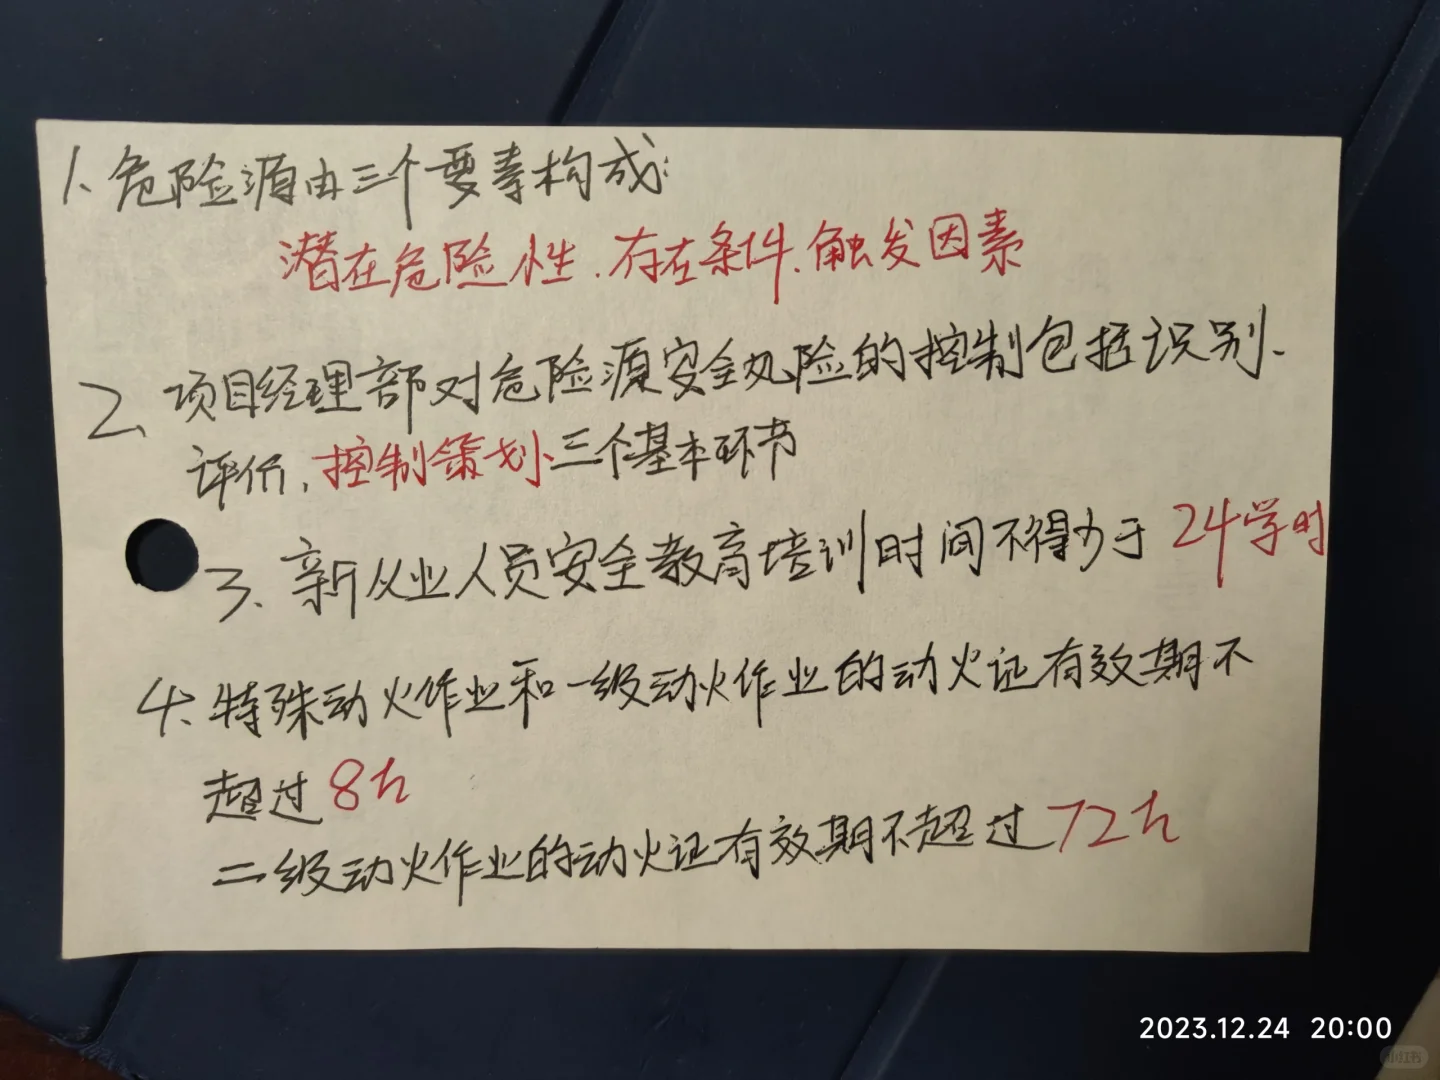 1、危险源由三个要素构成:
潜在危险性、存在条件、触发因素
2、项目经理部对危险源安全风险的控制包括识别、
评价、控制策划三个基本环节
3、新从业人员安全教育培训时间不得少于24学时
4、特殊动火作业和一级动火作业的动火证有效期不
超过8h
二级动火作业的动火证有效期不超过72h
2023.12.24 20:00
小红书